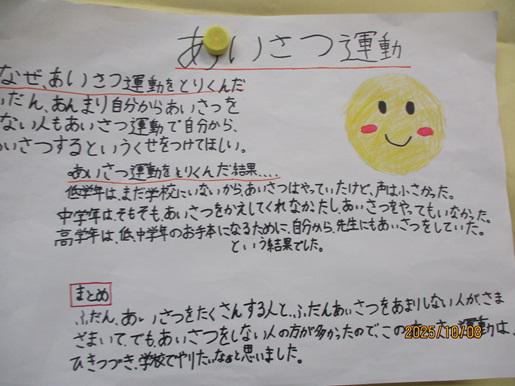 あいさつ運動
なぜ、あいさつ運動をとりくんだ
だん、あんまり自分からあいさつを
ない人もあいさつ運動で自分から、
いさつするというくせをつけてほしい。
あいさつ運動をとりくんだ結果....
低学年は、まだ学校にいないから、あいさつはやっていたけど、声は小さかった。
中学年は、そもそもあいさつをかえしてくれなかたし、あいさつをやってもいなかった。
高学年は、低、中学年のお手本になるために、自分から、先生にもあいさつをしていた。
という結果でした。
まとめ
ふだん、あいさつをたくさんする人と、ふだんあいさつをあまりしない人が、さま
ざまいて、でもあいさつをしない人の方が多かったので、この 運動は、
ひきつづき、学校でやりたいなぁと思いました。
2025/10/08